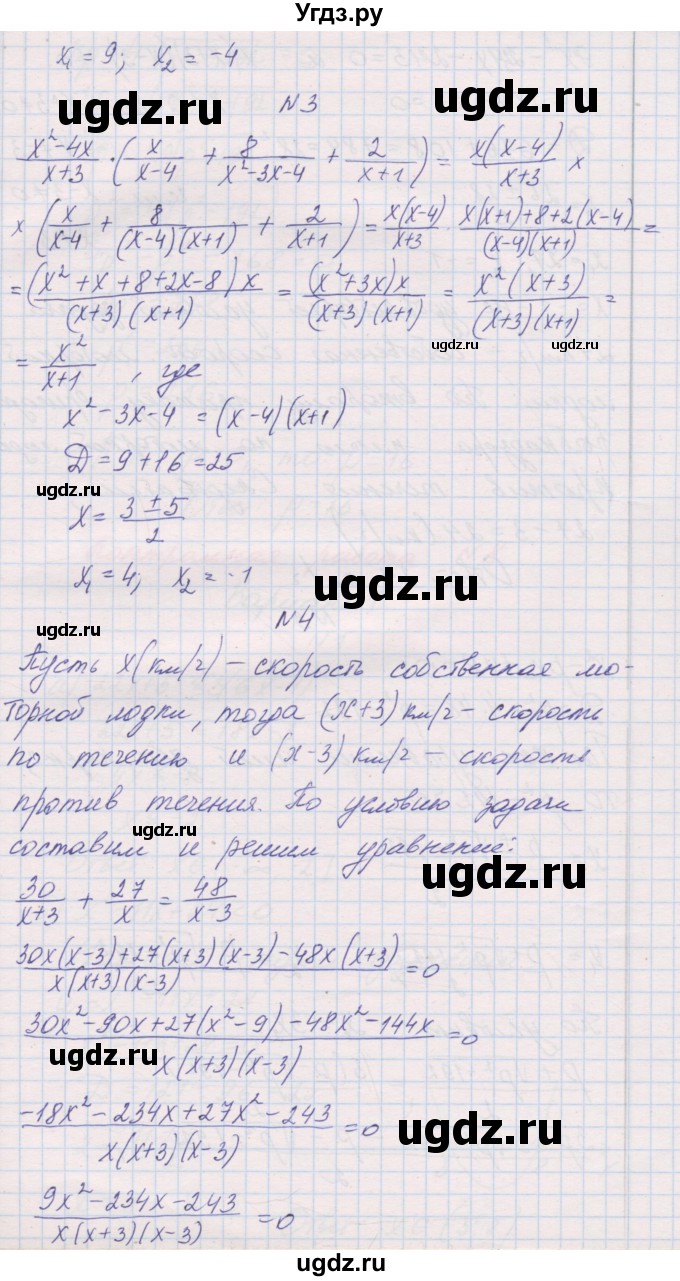 Угдз.ру
x₁ = 9; x₂ = -4
ugdz.ru ugdz.ru
N3
(x² - 4x)/(x+3) · (x/(x-4) + 8/(x²-3x-4) + 2/(x+1)) = x(x-4)/(x+3) ×
× (x/(x-4) + 8/((x-4)(x+1)) + 2/(x+1)) = x(x-4)/(x+3) · (x(x+1)+8+2(x-4))/((x-4)(x+1)) =
= (x²+x+8+2x-8)x/((x+3)(x+1)) = (x²+3x)x/((x+3)(x+1)) = x²(x+3)/((x+3)(x+1)) =
ugdz.ru ugdz.ru
= x²/(x+1) , где
x² - 3x - 4 = (x-4)(x+1)
D = 9 + 16 = 25
ugdz.ru
x = (3 ± 5)/2
x₁ = 4; x₂ = -1
ugdz.ru
N4
ugdz.ru
Пусть x (км/ч) – скорость собственная мо-
торной лодки, тогда (x+3) км/ч – скорость
по течению и (x-3) км/ч – скорость
против течения. По условию задачи
ugdz.ru
составим и решим уравнение:
ugdz.ru
30/(x+3) + 27/x = 48/(x-3)
(30x(x-3)+27(x+3)(x-3)-48x(x+3))/(x(x+3)(x-3)) = 0
(30x²-90x+27(x²-9)-48x²-144x)/(x(x+3)(x-3)) = 0
ugdz.ru ugdz.ru
(-18x²-234x+27x²-243)/(x(x+3)(x-3)) = 0
ugdz.ru
(9x²-234x-243)/(x(x+3)(x-3)) = 0
ugdz.ru